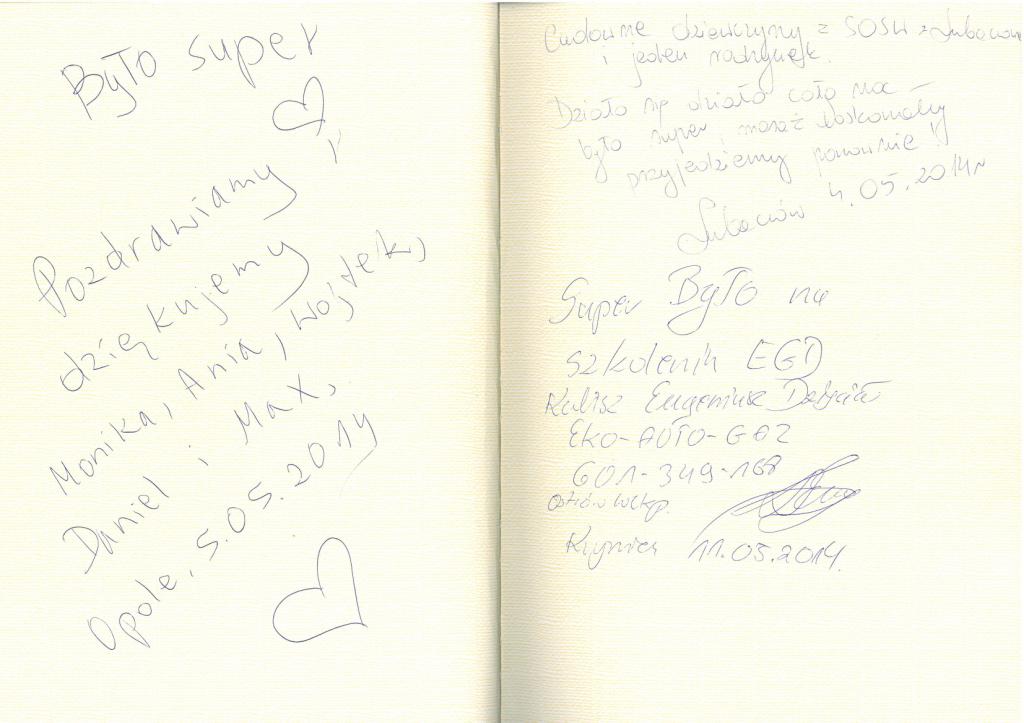 Było super
Pozdrawiamy i
dziękujemy
Monika, Ania, Wojtek,
Daniel i Max,
Opole, 5.05.2014
Cudowne dziewczyny z SOSW z Lubaczowa
i jeden rodzynek.
Działo się działo całą noc
było super, masaż doskonały
przyjedziemy ponownie!!
Lubaczów 4.05.2014r
Super Było na
szkoleniu EGD
Kalisz Eugeniusz
EKO-AUTO-GAZ
601-349-168
Ostrów Wlkp.
Krynica 11.05.2014.